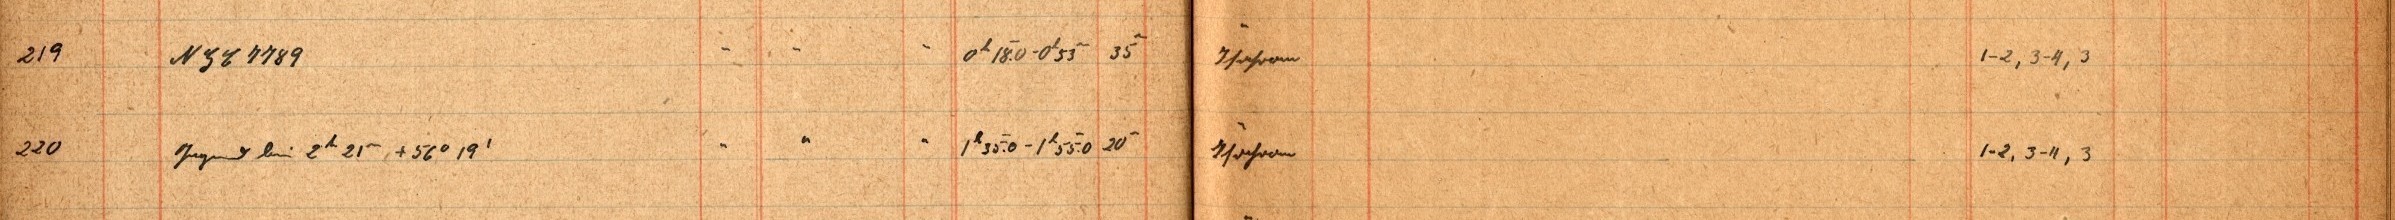 "
219 NGC 7789 " " " 0ʰ18ᵐ.0-0ʰ53ᵐ 35ᵐ Isochrom 1-2, 3-4, 3
"
220 Gegend bei 2ʰ 21ᵐ, +56° 19' " " " 1ʰ35ᵐ.0-1ʰ55ᵐ.0 20ᵐ Isochrom 1-2, 3-4, 3